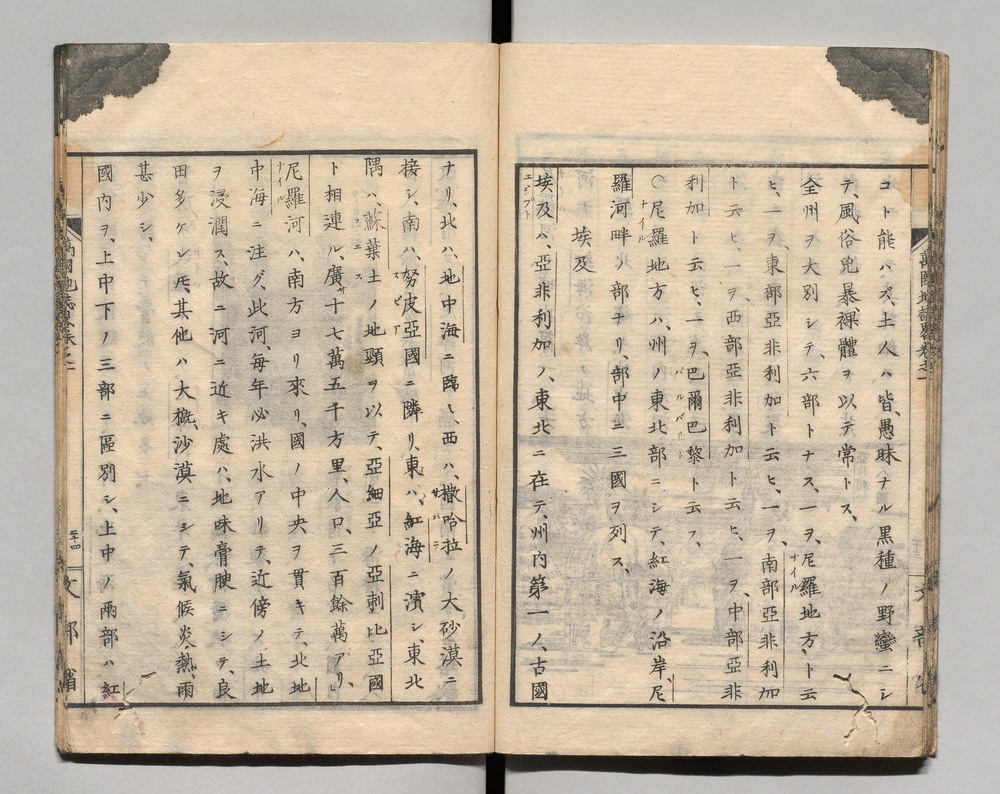 コト能ハズ、土人ハ皆、愚昧ナル黒種ノ野蠻ニシ
テ、風俗兇暴、裸體ヲ以テ常トス、
全州ヲ大別シテ、六部トナス、一ヲ、尼羅地方、ト云
ナイル
ヒ、一ヲ、東部亞非利加ト云ヒ、一ヲ、南部亞非利加
ト云ヒ、一ヲ、西部亞非利加ト云ヒ、一ヲ、中部亞非
利加ト云ヒ、一ヲ、巴爾巴黎ト云フ、
バルバリー
○尼羅地方ハ、州ノ東北部ニシテ、紅海ノ沿岸、尼
ナイル
羅河畔ノ部ナリ、部中ニ三國ヲ列ス、
埃及
埃及ハ、亞非利加ノ、東北ニ在テ、州内第一ノ、古國
エジプト
ナリ、北ハ、地中海ニ臨ミ、西ハ、撒哈拉ノ大砂漠ニ
サハラ
接シ、南ハ、努皮亞國ニ隣リ、東ハ、紅海ニ濱シ、東北
ヌビア
隅ハ、蘇葉士ノ地頸ヲ以テ、亞細亞ノ亞剌比亞國
スエス
ト相連ル、廣サ十七萬五千方里、人口、三百餘萬アリ、
尼羅河ハ、南方ヨリ來リ、國ノ中央ヲ貫キテ、北地
ナイル
中海ニ注グ、此河、每年必洪水アリテ、近傍ノ土地
ヲ浸潤ス、故ニ河ニ近キ處ハ、地味膏腴ニシテ、良
田多ケレ𪜈、其他ハ大槪、沙漠ニシテ、氣候炎熱、雨
甚少シ、
國内ヲ、上中下ノ三部ニ區別シ、上中ノ兩部ハ紅
五十四
文部省